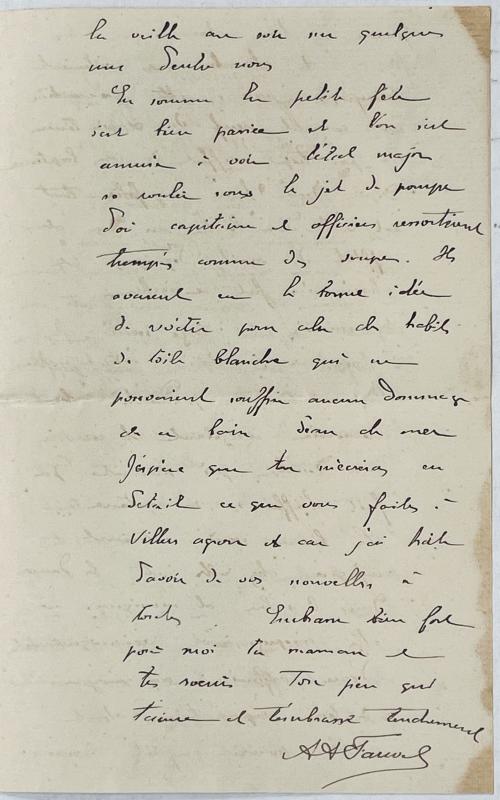 la veille au soir sur quelques
uns d'entre nous
En somme la petite fête
s'est bien passée et l'on s'est
amusé à voir l'état major
se rouler sous le jet de pompe
d'où capitaine et officiers ressortirent
trempés comme des soupes. Ils
avaient eu la bonne idée
de vêtir pour cela des habits
de toile blanche qui ne
pouvaient souffrir aucun dommage
de ce bain d'eau de mer
J'espère que tu m'écriras en
détail ce que vous faites à
Villers et car j'ai hâte
d'avoir de vos nouvelles à
toutes Embrasse bien fort
pour moi ta maman et
tes soeurs Ton père qui
t'aime et t'embrasse tendrement